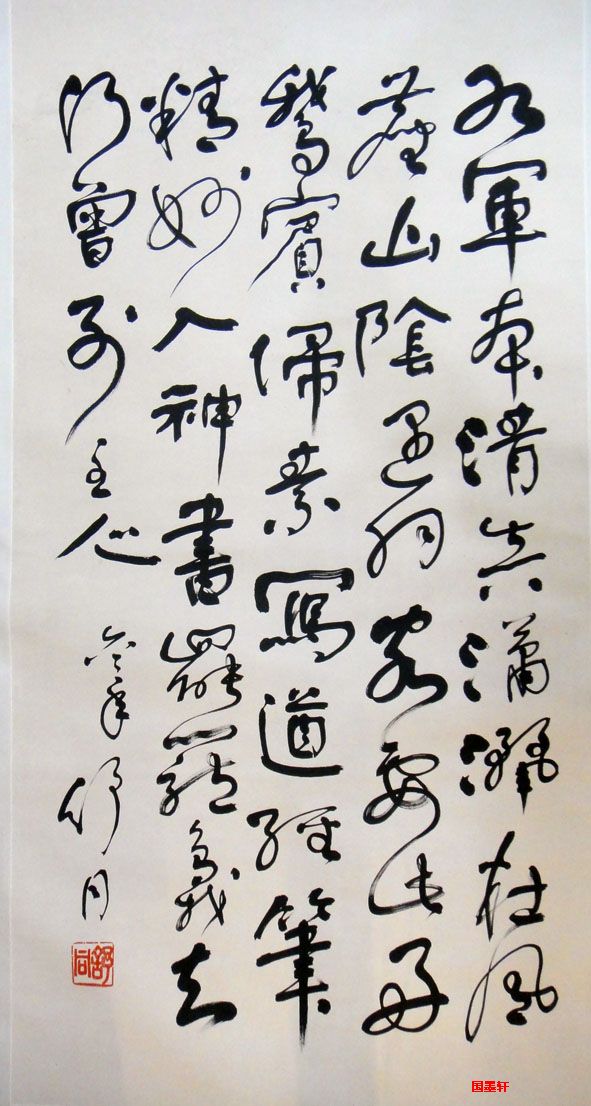 右軍本清真瀟灑在風
塵山陰遇羽客要此好
鵝賓掃素寫道經筆
精妙入神書罷籠鵝去
何曾別主人
舒同
舒同
国墨轩